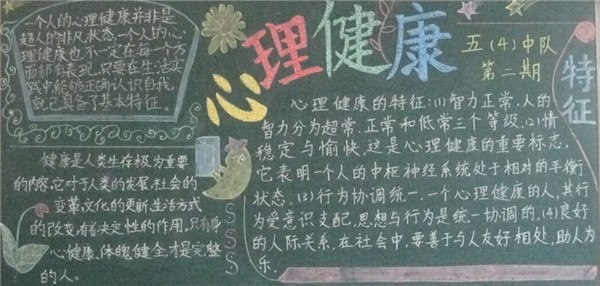 一个人的心理健康并非是
超人的非凡状态,一个人的心
理健康也不一定在每一个方
面都有表现,只要在生活实
践中能够正确认识自我,
就已具备了基本特征。
心理健康
五(4)中队
第二期
特征
健康是人类生存极为重要
的内容,它对于人类的发展,社会的
变革,文化的更新,生活方式
的改变,有着决定性的作用,只有身
心健康、体魄健全,才是完整
的人。
心理健康的特征:(1)智力正常,人的
智力分为超常、正常和低常三个等级、(2)情
稳定与愉快,这是心理健康的重要标志,
它表明一个人的中枢神经系统处于相对的平衡
状态。(3)行为协调统一、一个心理健康的人,其行
为受意识支配,思想与行为是统一协调的,(4)良好
的人际关系,在社会中,要善于与人友好相处,助人为
乐.
S
S
S
S